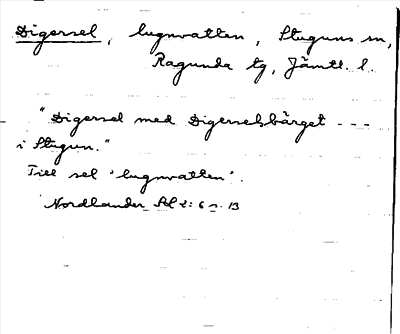 Digersel, lugnvatten, Stuguns sn,
Ragunda tg, Jämtl. l.
"Digersel med Digerselsbärget ---
i Stugun."
Till sel 'lugnvatten'.
Nordlander Sol 2: 6 s. 13